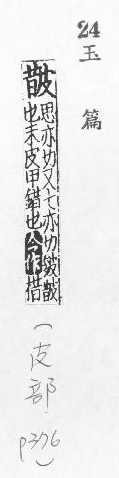 24
玉篇
皵
思亦切又七亦切皴皵
也耒皮田錯也今作措
(皮部 p376)